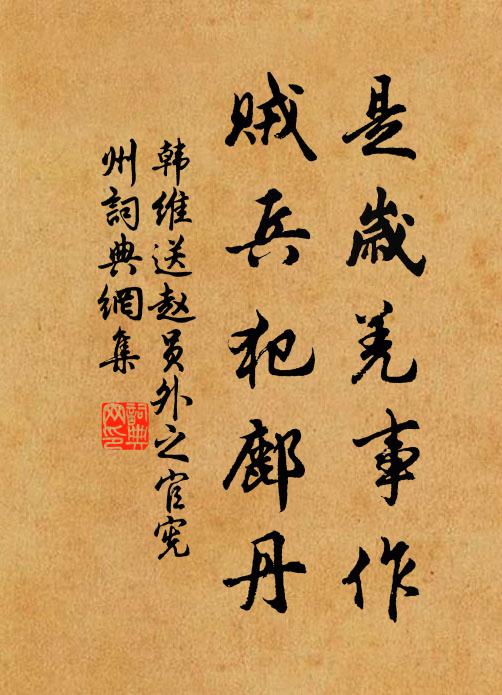 是歲羌事作
賊兵犯鄜丹
韩维送赵员外之官宪
州詞典網集
詞典网印